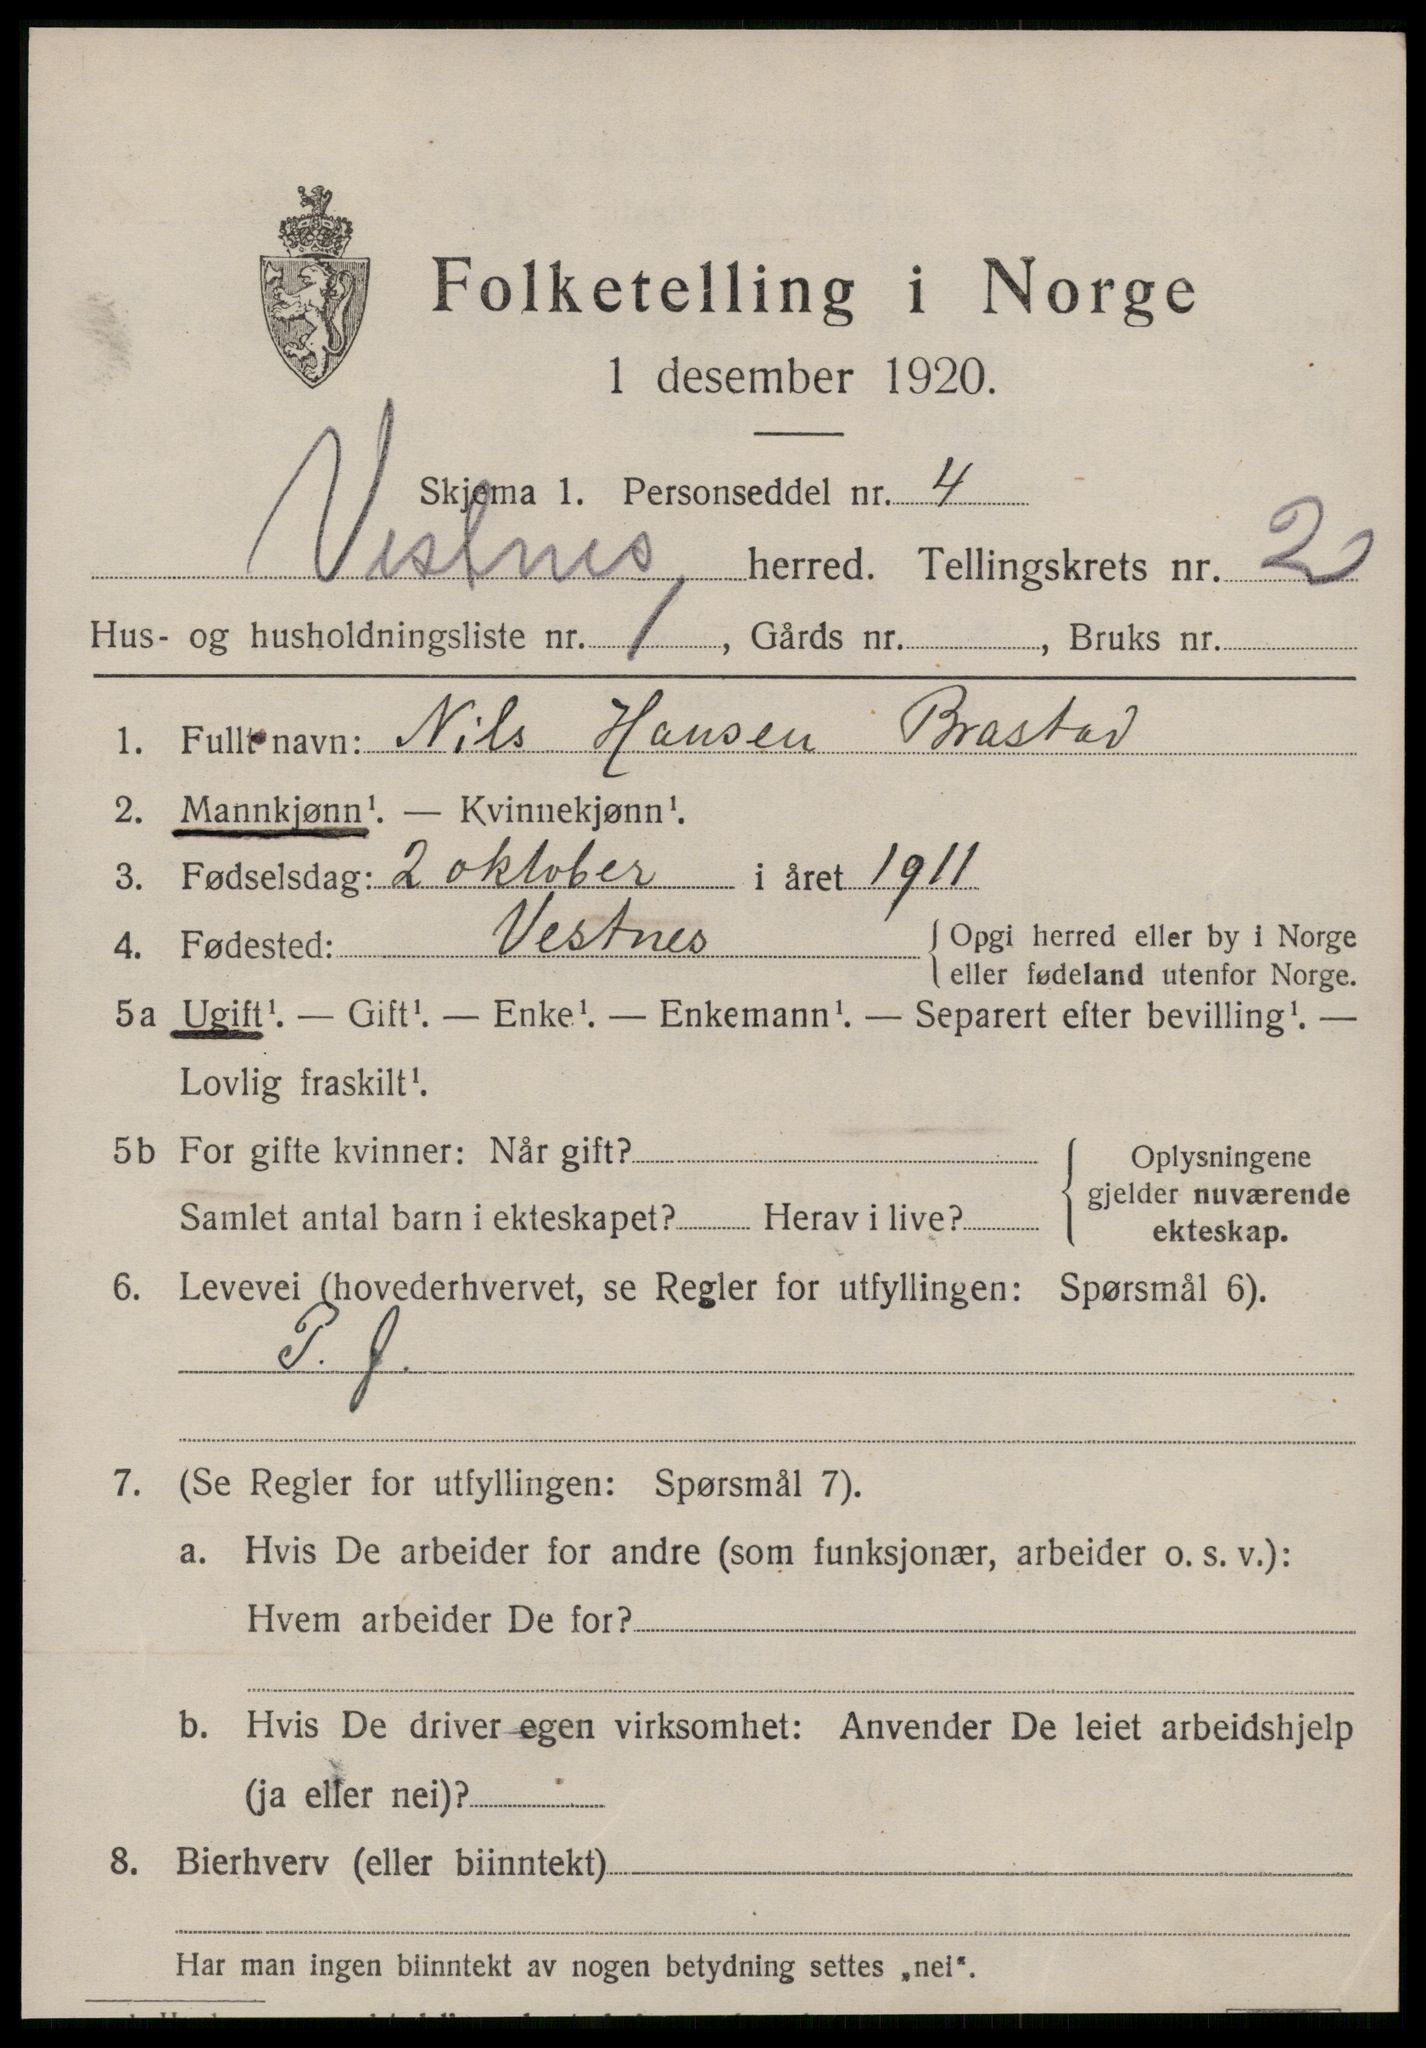 Folketelling i Norge
1 desember 1920.
Skjema 1. Personseddel nr. 4
Vestnes herred. Tellingskrets nr. 2
Hus- og husholdningsliste nr. 1, Gårds nr. , Bruks nr.
1. Fullt navn: Nils Hansen Brastad
2. Mannkjønn¹. — Kvinnekjønn¹.
3. Fødselsdag: 2 oktober i året 1911
4. Fødested: Vestnes
Opgi herred eller by i Norge
eller fødeland utenfor Norge.
5a Ugift¹. — Gift¹. — Enke¹. — Enkemann¹. — Separert efter bevilling¹. —
Lovlig fraskilt¹.
5b For gifte kvinner: Når gift?
Samlet antal barn i ekteskapet? Herav i live?
Oplysningene
gjelder nuværende
ekteskap.
6. Levevei (hovederhvervet, se Regler for utfyllingen: Spørsmål 6).
P. J.
7. (Se Regler for utfyllingen: Spørsmål 7).
a. Hvis De arbeider for andre (som funksjonær, arbeider o. s. v.):
Hvem arbeider De for?
b. Hvis De driver egen virksomhet: Anvender De leiet arbeidshjelp
(ja eller nei)?
8. Bierhverv (eller biinntekt)
Har man ingen biinntekt av nogen betydning settes „nei“.